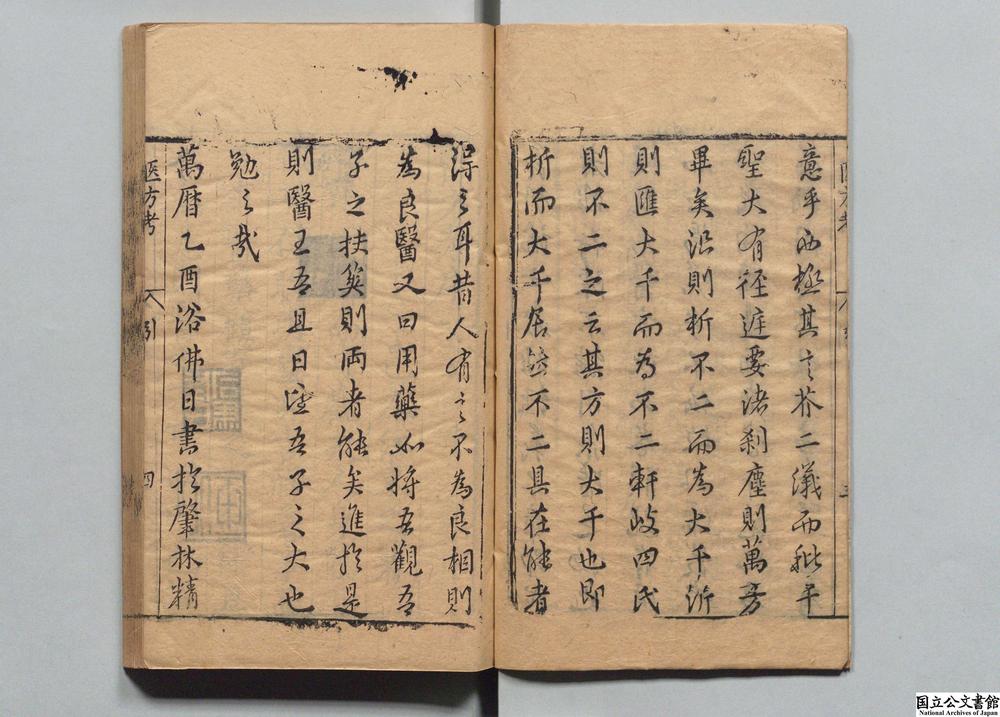 意乎極其言芥二儀而秕千
聖大有徑遳要诸剎塵則萬方
畢矣沿則析不二而為大千泝
則匯大千而為不二軒岐四氏
則不二之云其方則大千也即
析而大千居然不二具在能者
得之耳昔人有言不為良相則
為良醫又曰用藥如將吾觀吾
子之技奚則兩者能矣進於是
則醫王吾且日望吾子之大也
勉之哉
萬曆乙酉浴佛日書於肇林精
医方考
引
四
国立公文書館
National Archives of Japan